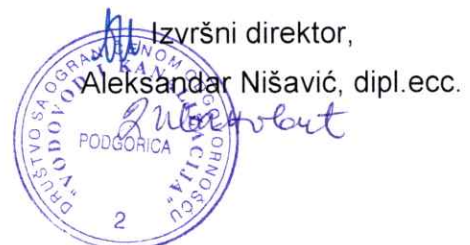 Izvršni direktor,
Aleksandar Nišavić, dipl.ecc.
DRUŠTVO SA OGRANIČENOM ODGOVORNOŠĆU
„VODOVOD I KANALIZACIJA"
PODGORICA
2